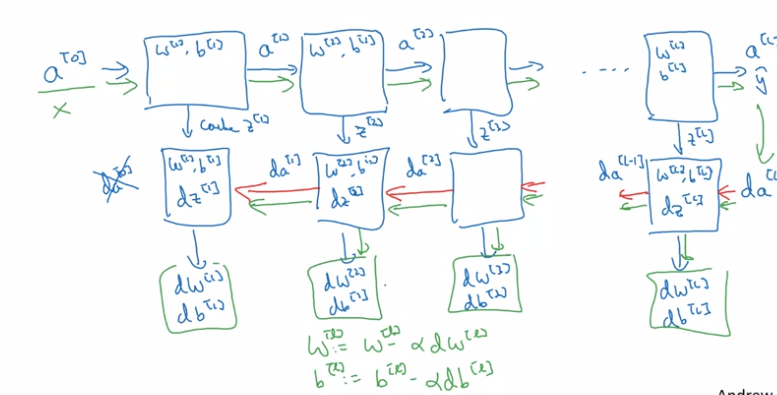 a^[0]
x
w^[1], b^[1]
a^[1]
w^[2], b^[2]
a^[2]
....
w^[L]
b^[L]
a^[L]
ŷ
cache z^[1]
z^[2]
z^[3]
z^[L]
da^[0]
w^[1], b^[1]
dz^[1]
da^[1]
w^[2], b^[2]
dz^[2]
da^[2]
da^[L-1]
w^[L], b^[L]
dz^[L]
da^[L]
dw^[1]
db^[1]
dw^[2]
db^[2]
dw^[3]
db^[3]
dw^[L]
db^[L]
w^[l] := w^[l] - αdw^[l]
b^[l] := b^[l] - αdb^[l]
Andrew